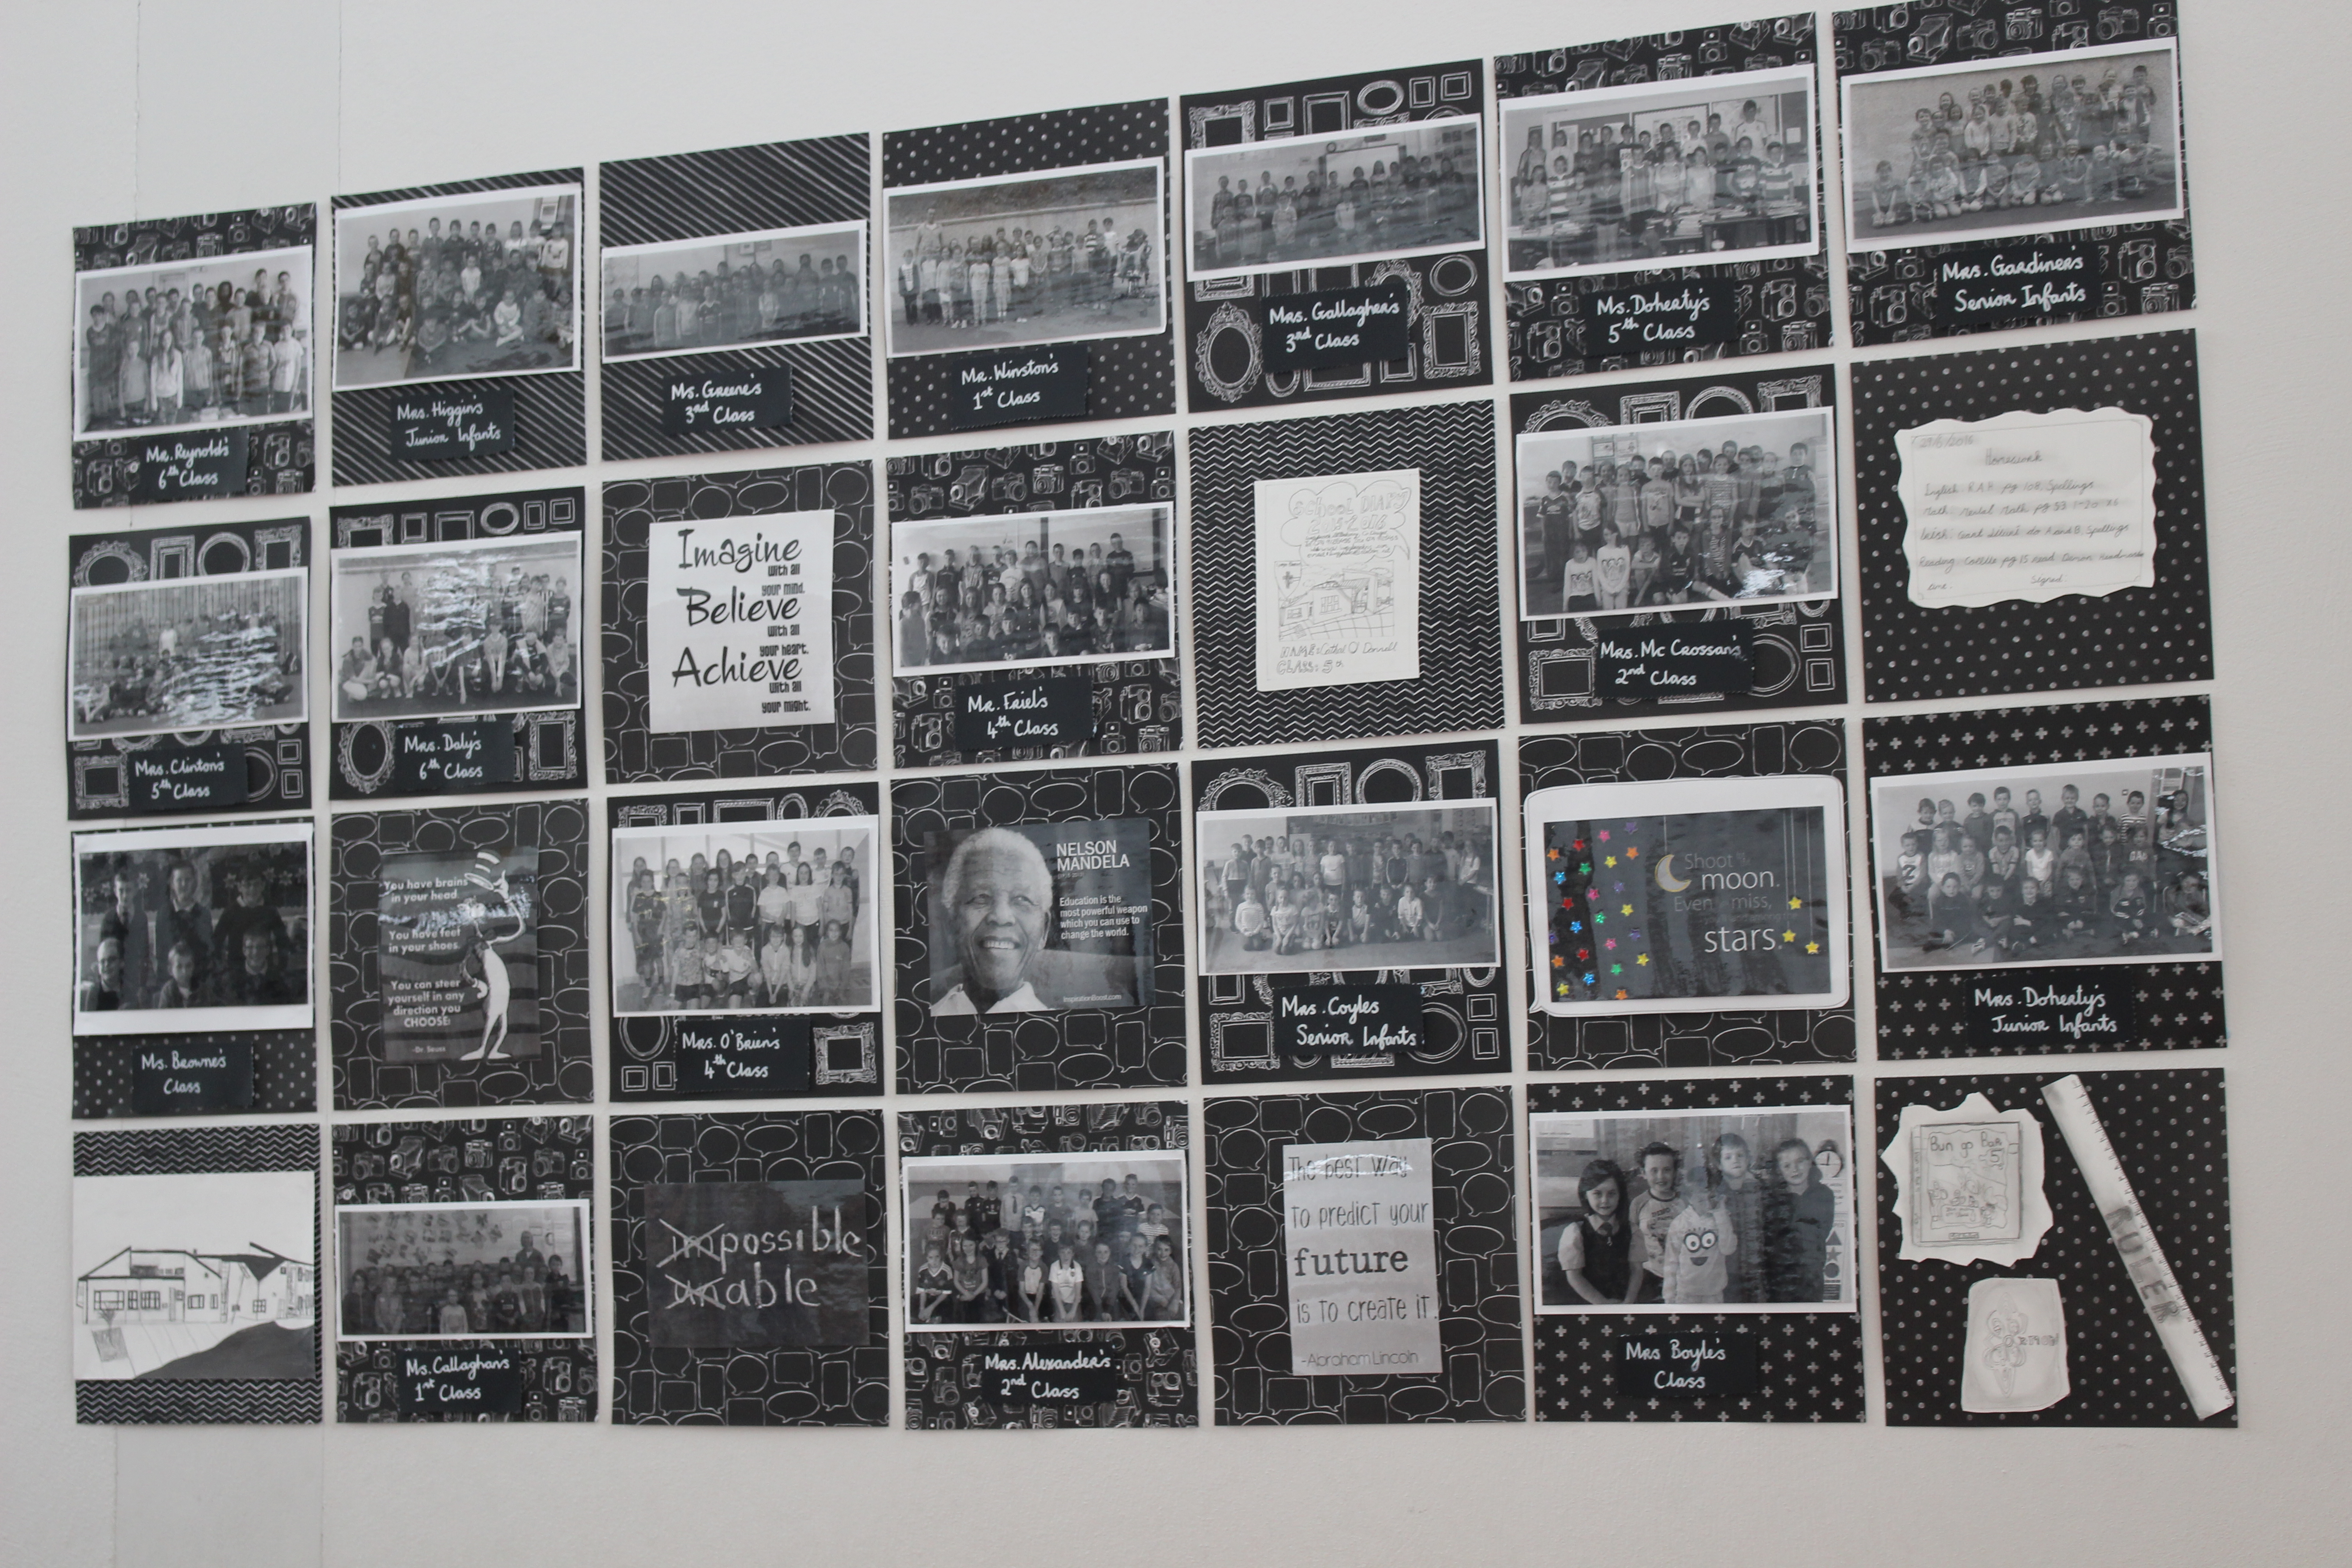 Mr. Reynold's
6th Class
Mrs. Higgin's
Junior Infants
Ms. Greene's
3rd Class
Mr. Winston's
1st Class
Mrs. Gallagher's
3rd Class
Ms. Doherty's
5th Class
Mrs. Gardiner's
Senior Infants
Mrs. Clinton's
5th Class
Mrs. Daly's
6th Class
Imagine
with all
your mind.
Believe
with all
your heart.
Achieve
with all
your might.
Mr. Friel's
4th Class
School DIARY
2015-2016
NAME: Cathal O'Donnell
CLASS: 5th
Mrs. Mc Crossan's
2nd Class
Homework
English R.A.P. pg 108, Spellings
Math: Mental Math pg 93
Spellings
Reading: pg 15 read
Signed
Ms. Browne's
Class
You have brains
in your head.
You have feet
in your shoes.
You can steer
yourself in any
direction you
CHOOSE.
-Dr. Seuss
Mrs. O'Brien's
4th Class
NELSON
MANDELA
Education is the
most powerful weapon
which you can use to
change the world.
InspirationBoost.com
Mrs. Coyles
Senior Infants.
Shoot
moon.
Even miss,
stars.
Mrs. Doherty's
Junior Infants
Ms. Callaghan's
1st Class
impossible
unable
Mrs. Alexander's
2nd Class
The best way
to predict your
future
is to create it.
-Abraham Lincoln
Mrs Boyle's
Class
Bun go Barr
5
RULER